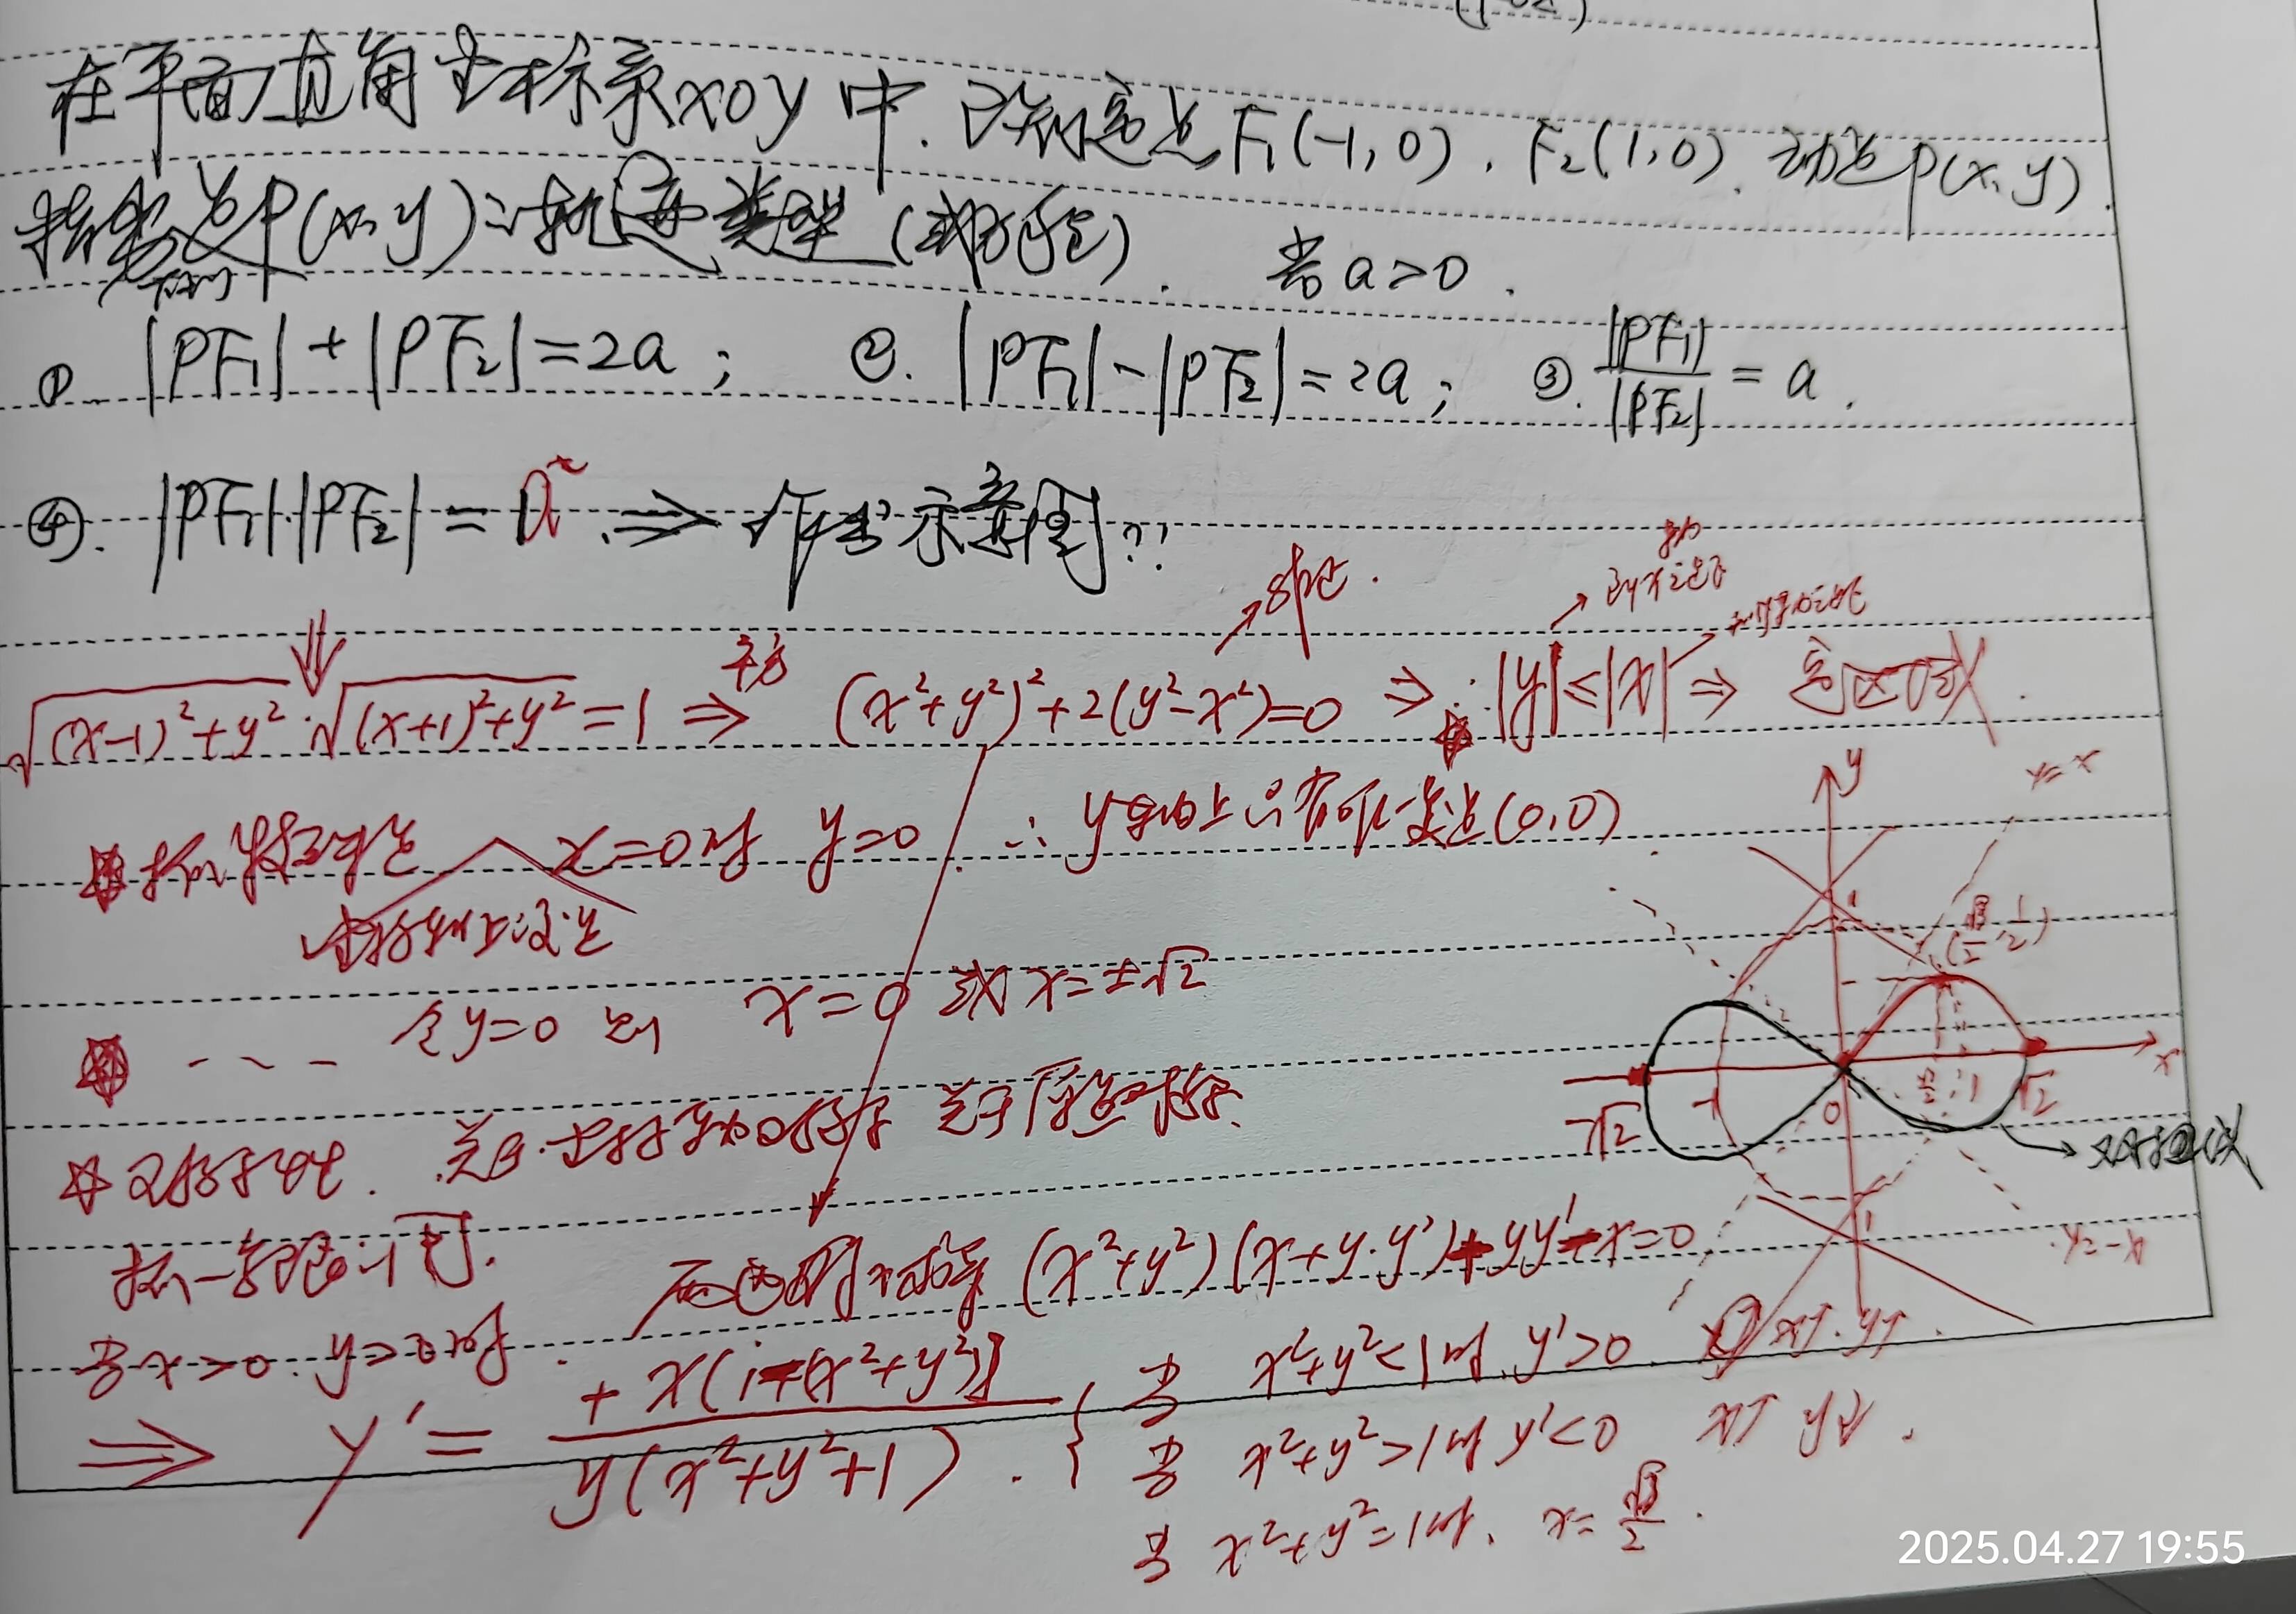 在平面直角坐标系xoy中.已知定点F₁(-1,0),F₂(1,0).动点P(x,y).
P(x,y)之轨迹类型(或方程). 若a>0.
①.|PF₁|+|PF₂|=2a; ②.|PF₁|-|PF₂|=2a; ③.|PF₁|/|PF₂|=a.
④.|PF₁|·|PF₂|=a².⇒作出示意图??
√((x-1)²+y²)·√((x+1)²+y²)=1 ⇒ 平方 (x²+y²)²+2(y²-x²)=0 ⇒∴|y|≤|x|⇒定区域.
x=0时 y=0 ∴y轴上只有唯一交点(0,0)
--- 令y=0则 x=0或x=±√2
☆对称性. 关于原点对称.
当x>0.y>0时. 两边同时对x求导(x²+y²)(x+y·y')+yy'-x=0
⇒ y'=+x(1-(x²+y²))/y(x²+y²+1).
{当 x²+y²<1时,y'>0. x↑.y↑.
当 x²+y²>1时y'<0 x↑ y↓.
当 x²+y²=1时、x=√3/2.
y
y=x
(√3/2,1/2)
1
-√2
-1
0
√3/2
1
√2
x
双纽线
y=-x
2025.04.27 19:55